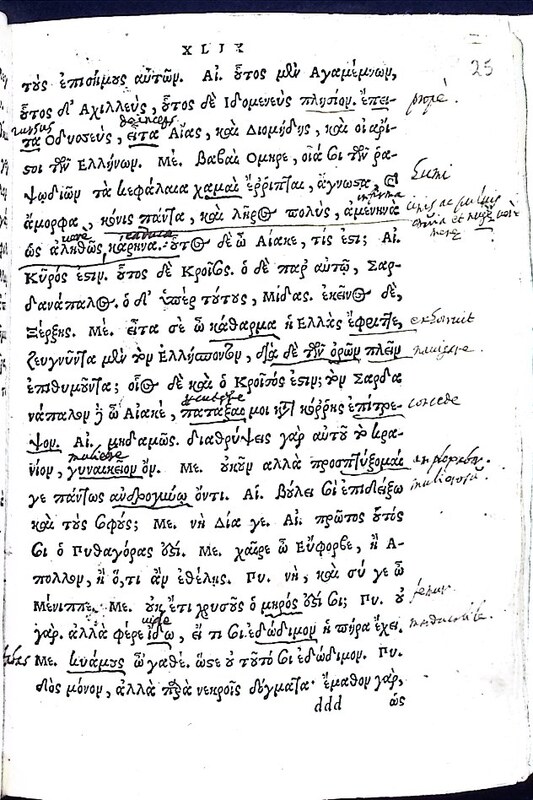 XLIX
25
τοὺς ἐπισήμους αὐτῶν. Αἰ. οὗτος μὲν Ἀγαμέμνων,
οὗτος δ' Ἀχιλλεὺς, οὗτος δὲ Ἰδομενεὺς πλησίον. ἔπει- propè.
rursus deinceps
τα Ὀδυσσεὺς, εἶτα Αἴας, καὶ Διομήδης, καὶ οἱ ἄρι-
στοι τῶν Ἑλλήνων. Με. Βαβαὶ Ὅμηρε, οἷά σοι τῶν ῥα-
ψωδιῶν τὰ κεφάλαια χαμαὶ ἔῤῥιπται, ἄγνωστα, καὶ humi
infirma
ἄμορφα, κόνις πάντα, καὶ λῆρος πολὺς, ἀμενηνὰ
ὡς ἀληθῶς κάρηνα. οὗτος δὲ ὦ Αἰακέ, τίς ἐστι; Αἰ.
Κῦρός ἐστιν. οὗτος δὲ Κροῖσος. ὁ δὲ παρ' αὐτῷ, Σαρ-
δανάπαλος. ὁ δ' ὑπὲρ τούτους, Μίδας. ἐκεῖνος δὲ,
Ξέρξης. Με. εἶτα σὲ ὦ κάθαρμα ἡ Ἑλλὰς ἔφριττε,
ζευγνῦντα μὲν τὸν Ἑλλήσποντον, διὰ δὲ τῶν ὀρῶν πλεῖν navigare.
ἐπιθυμοῦντα; οἷος δὲ καὶ ὁ Κροῖσός ἐστιν; τὸν Σαρδα
νάπαλον δὲ ὦ Αἰακέ, πατάξαι μοι κατὰ κόῤῥης ἐπίτρε- concede
ψον. Αἰ. μηδαμῶς. διαθρύψεις γὰρ αὐτοῦ τὸ κρα-
muliebre
νίον, γυναικεῖον ὄν. Με. οὐκοῦν ἀλλὰ προσπτύξομαί
γε πάντως ἀνδρογύνῳ ὄντι. Αἰ. βούλει σοι ἐπιδείξω
καὶ τοὺς σοφούς; Με. νὴ Δία γε. Αἰ. πρῶτος οὗτός
σοι ὁ Πυθαγόρας ἐστί. Με. χαῖρε ὦ Εὔφορβε, ἢ Ἄ-
πολλον, ἢ ὅ,τι ἂν ἐθέλῃς. Πυ. νὴ, καὶ σύ γε ὦ
Μένιππε. Με. οὐκ ἔτι χρυσοῦς ὁ μηρός ἐστί σοι; Πυ. οὐ femur.
γάρ. ἀλλὰ φέρε ἴδω, εἴ τι σοι ἐδώδιμον ἡ πήρα ἔχει.
fabas Με. κυάμους ὦ 'γαθέ. ὥστε οὐ τοῦτό σοι ἐδώδιμον. Πυ.
δὸς μόνον, ἄλλα παρὰ νεκροῖς δόγματα· ἔμαθον γὰρ,
ddd ὡς